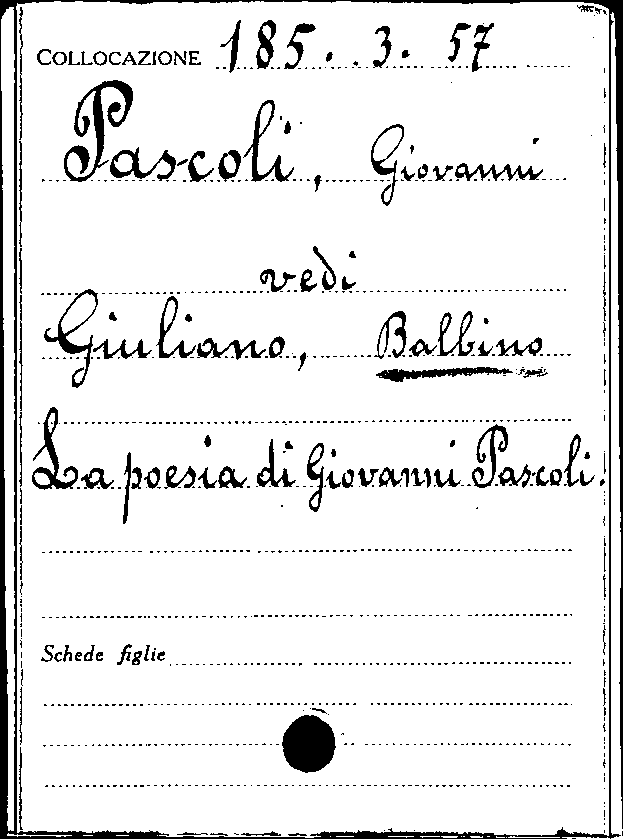 COLLOCAZIONE 185. 3. 57
Pascoli, Giovanni
vedi
Giuliano, Balbino
La poesia di Giovanni Pascoli.
Schede figlie